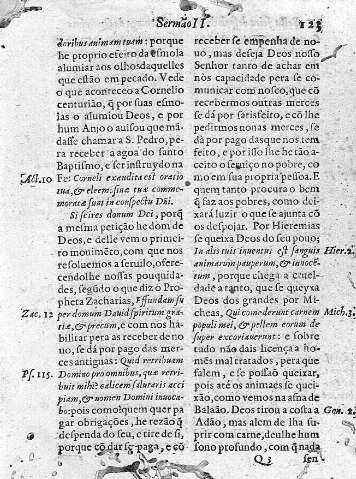 Sermão II.
123
doribus animam tuam: porque
he proprio efeito da esmola
alumiar aos olhos daquelles
que estão em pecado. Vede
o que aconteceo a Cornelio
centurião, q̃ por suas esmo-
las o alumiou Deos, e por
hum Anjo o auisou que mã-
dasse chamar a S. Pedro, pe-
ra receber a agoa do santo
Baptismo, e ser instruydo na
Act. 10
Fe: Corneli exaudita est oratio
tua, & eleemosinæ tuæ comme-
moratæ sunt in conspectu Dñi.
Si scires donum Dei, porq̃
a mesma petição he dom de
Deos, e delle vem o primei-
ro mouimẽto, com que nos
resoluemos a seruilo, offere-
cendolhe nossas pouquida-
des, segũdo o que diz o Pro-
pheta Zacharias, Effundam su
Zac. 12
per domum Dauid spiritum gra-
tiæ, & precum, e com nos ha-
bilitar pera as receber de no
uo, se dá por pago das mer-
ces antiguas: Quid retribuam
Ps. 115.
Domino pro omnibus, quæ retri-
buit mihi? calicem salutaris acci
piam, & nomen Domini inuoca-
bo: pois como quem quer pa-
gar obrigações, he rezão q̃
despenda do seu, e tire de si,
porque cõ dar se paga, e cõ
receber se empenha de no-
uo, mas deseja Deos nosso
Senhor tanto de achar em
nòs capacidade pera se co-
municar com nosco, que cõ
recebermos outras merces
se dá por satisfeito, e cõ lhe
pedirmos nouas merces, se
dá por pago das que nos tem
feito, e por isso lhe he tão a-
ceito o seruiço no pobre, co
mo em sua propria pessoa. E
quem tanto procura o bem
q̃ faz aos pobres, como dei-
xará luzir o que se ajunta cõ
os despojar. Por Hieremias
se queixa Deos do seu pouo;
In alis tuis inuentus est sanguis
Hier. 2.
animarum pauperum, & innocẽ-
tum, porque chega a cruel-
dade a tanto, que se queyxa
Deos dos grandes por Mi-
cheas, Qui comederunt carnem
Mich. 3.
populi mei, & pellem eorum de
super excoriauerunt: e sobre
tudo não dais licença a ho-
mẽs mal tratados, pera que
falem, e se possaõ queixar,
pois até os animaes se quei-
xão, como vemos na asna de
Balaão. Deos tirou a costa a
Gen. 2.
Adão, mas alem de lha su-
prir com carne, deulhe hum
sono profundo, com q̃ nada
Q 3
sen